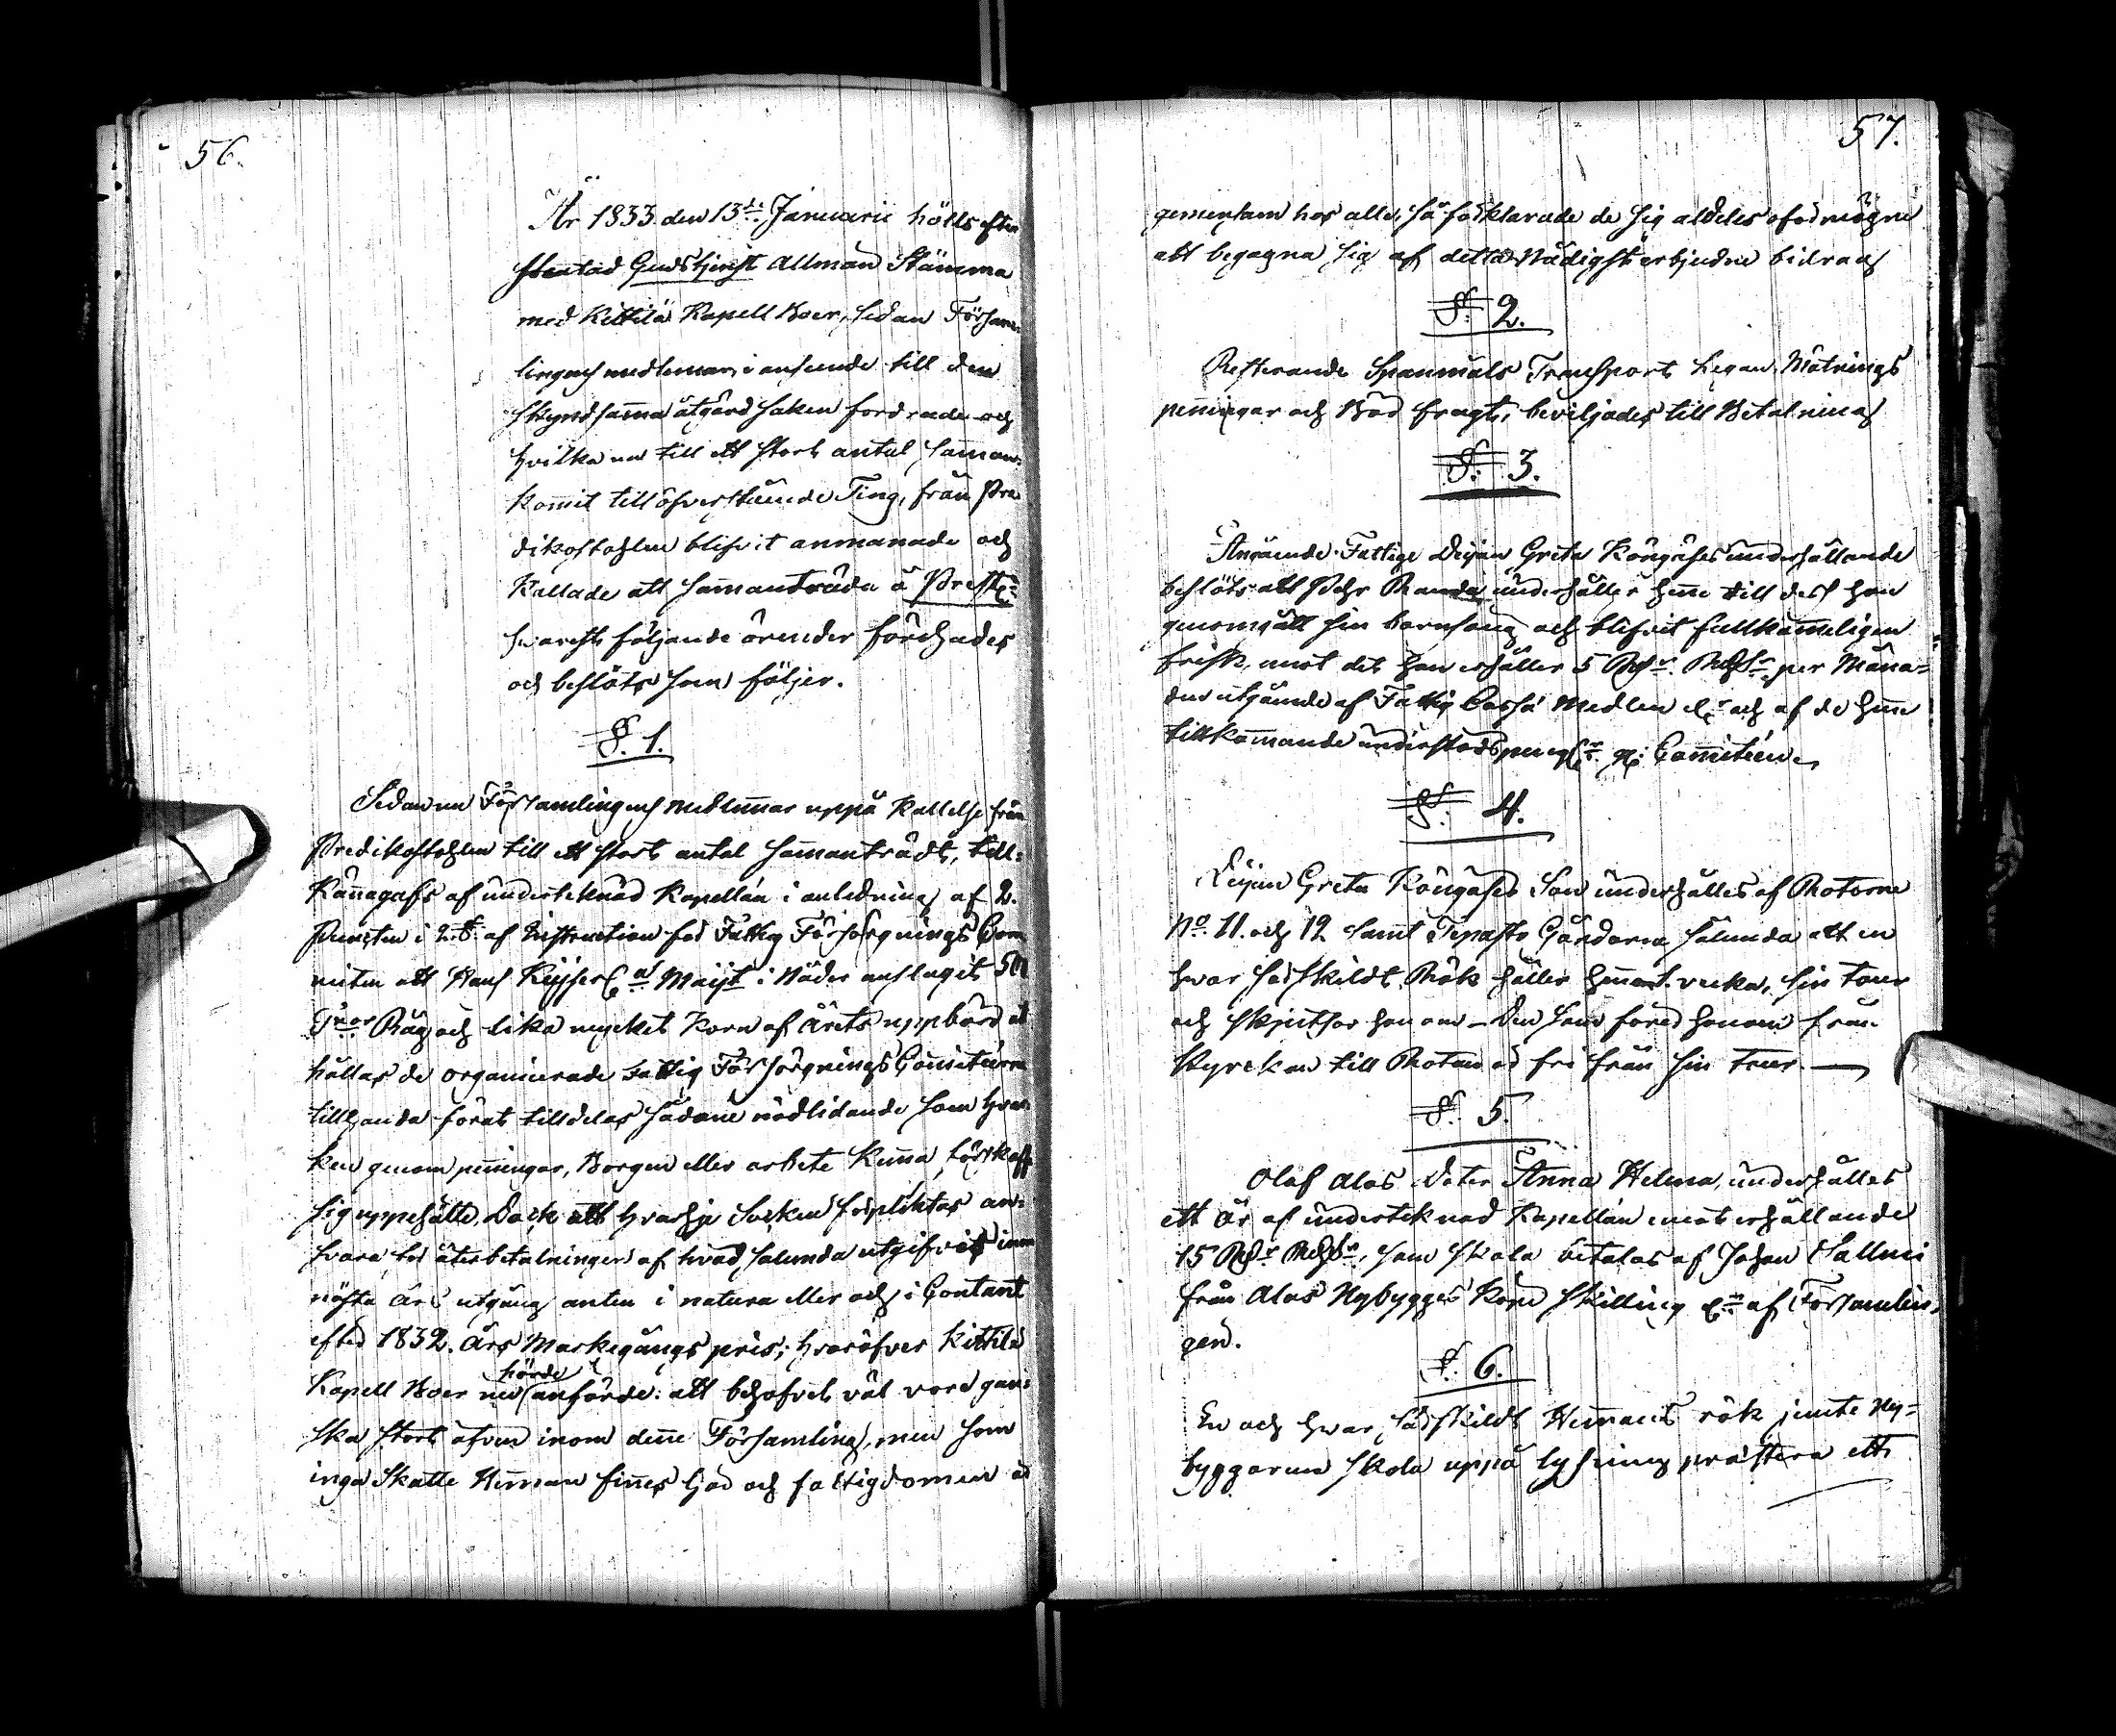 56.
År 1833 den 13de Januarii hölls efter
slentad Gudstjenst Allman Stämma
med Kittilä Kapell Boer, sedan Församm-
lingens medlemar, i anseende till den
skyndsamma åtgärd saken fordrade och
hvilka nu till ett stort antal samman-
kommit till öfverstående Ting, från Pre-
dikostohlen blifvit anmanade och
Kallade att sammanträda å Preste:
hvarest följande ärender förehades
och beslöts som följer.
§. 1.
Sedan nu Församlingens medlemmar uppå Kallelse från
Predikostohlen till ett stort antal sammanträdt, till-
kännagafs af undertecknad Kapellan i anledning af 2.
Puncten i 2. §. af Instruction för Fattig Försörgnings Com
miten att Hans Kejserl. Majt i Nåder anslagit 50
T:nor Råg och lika mycket Korn af Årets uppbörd at
hållas de organiserade Fattig Försörgnings Comiteerna
tillhanda förat tilldelas sådane nödlidande som hvar-
ken genom penningar, Borgen eller arbete kunna förskaff
sig uppehälle, Dock att hvarje Socken förpliktas an-
svara för återbetalningen af hvad sålunda utgifvits inom
nästa års utgång anten i natura eller och i Contant
efter 1832. års Markegångs pris; hvaröfver Kittilä
Kapell Boer nu hörde anförde: att behofvet väl vore gan-
ska stort äfven inom denne Församling, men som
inga Skatte Hemman finnes här och fattigdomen är
57.
gemensam hos alle, så förklarade de sig alldeles oförmögne
att begagna sig af detta Nådigst erbjudne bidrag
§. 2.
Resterande Spanmåls Transport Legan, Mätnings
penningar och Båd fragt, beviljades till Betalning
§. 3.
Angående Fattige Pigan Greta Köngäses underhållande
beslöts att Pehr Randa underhåller henne till dess hon
genomgått sin barnsäng och blifvit fullkommeligen
frisk, mot det han erhåller 5 Rd:r RdgS:r per Måna-
der utgående af Fattig Cassa Medlen och af de henne
tillkommande understödspeng:r Comiteen
§. 4.
Pigan Greta Köngäses Son underhålles af Rotorne
No. 11. och 12 samt Tepasto Gårdarne sålunda att en
hvar särskildt Rök håller honom 1. vecka, sin tour
och skjutsar honom – Den som förer honom från
Kyrckan till Roten är fri från sin tour. —
§. 5.
Olof Alas Doter Anna Helena, underhålles
ett år af undertecknad Kapellan emot erhållande
15 Rd:r RdgS:r, som skola betalas af Johan Salmi
från Alas Nybygges Köpe skilling af Försämlin-
gen.
§. 6.
En och hvar särskildt Hemmans rök jemte Ny-
byggarne skola uppå lysning prästera ett